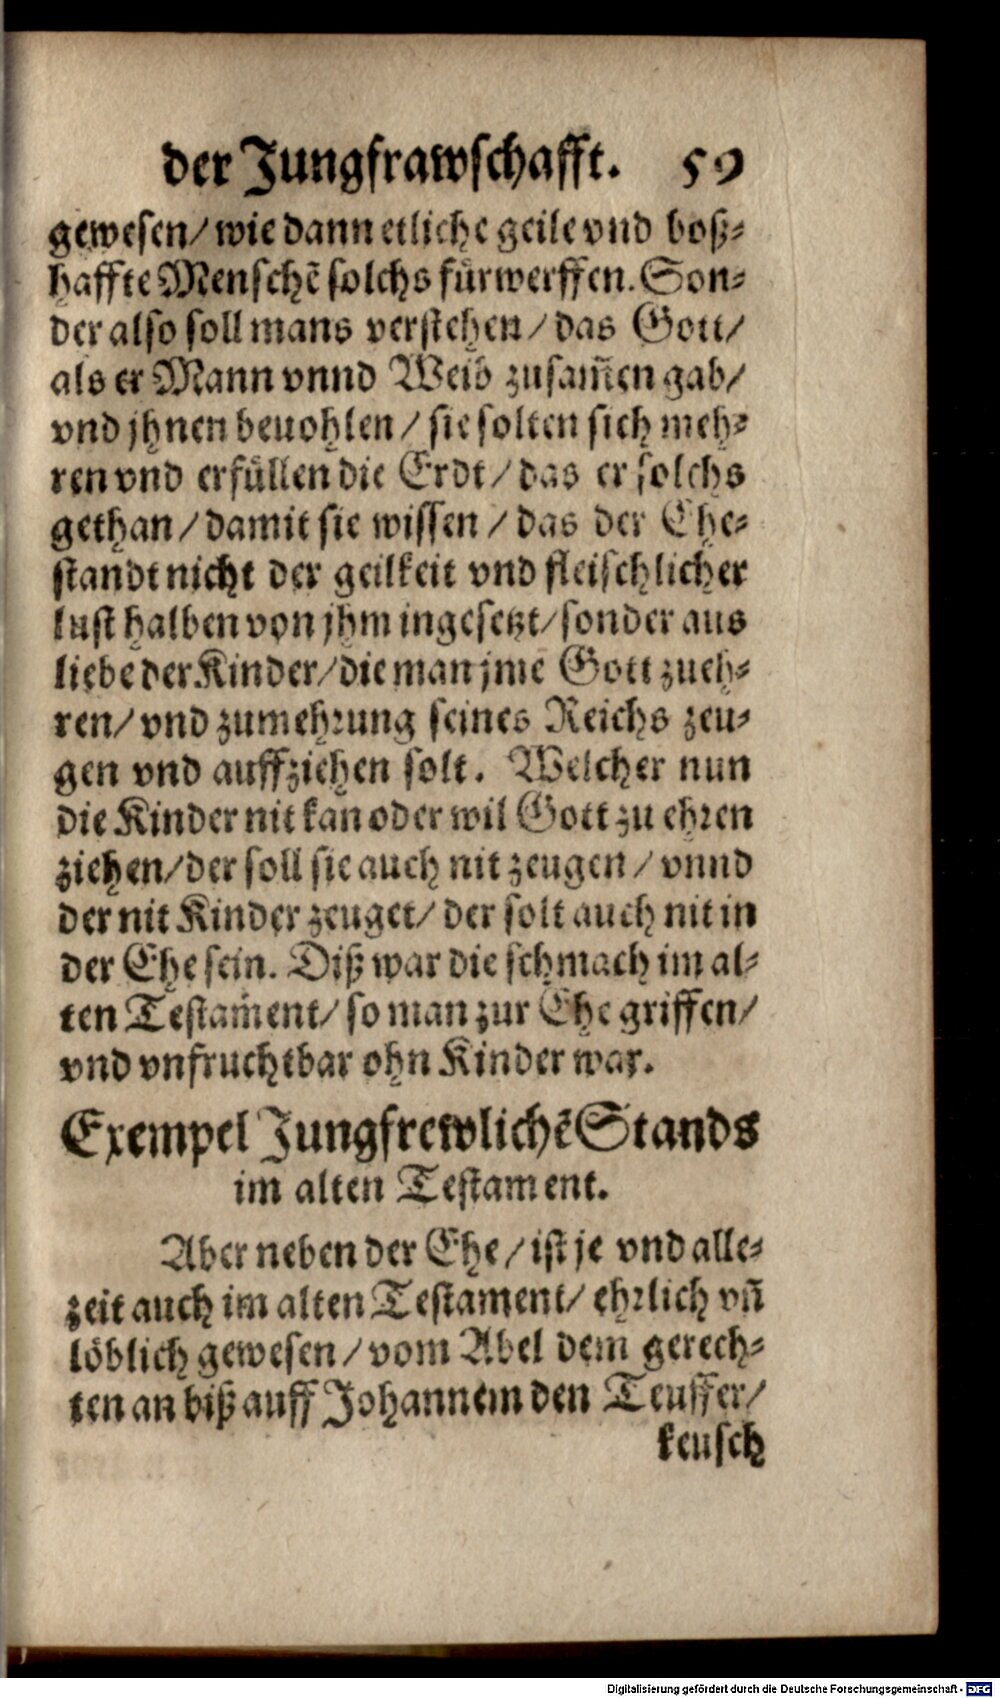 der Jungfrawschafft. 59
gewesen/ wie dann etliche geile vnd boß⸗
haffte Menschẽ solchs fürwerffen. Son⸗
der also soll mans verstehen/ das Gott/
als er Mann vnnd Weib zusam̃en gab/
vnd jhnen beuohlen/ sie solten sich meh⸗
ren vnd erfüllen die Erdt/ das er solchs
gethan/ damit sie wissen/ das der Ehe⸗
standt nicht der geilkeit vnd fleischlicher
lust halben von jhm ingesetzt/ sonder aus
liebe der Kinder/ die man jme Gott zueh⸗
ren/ vnd zumehrung seines Reichs zeu⸗
gen vnd auffziehen solt. Welcher nun
die Kinder nit kan oder wil Gott zu ehren
ziehen/ der soll sie auch nit zeugen/ vnnd
der nit Kinder zeuget/ der solt auch nit in
der Ehe sein. Diß war die schmach im al⸗
ten Testam̃ent/ so man zur Ehe griffen/
vnd vnfruchtbar ohn Kinder war.
Exempel Jungfrewlichẽ Stands
im alten Testament.
Aber neben der Ehe/ ist je vnd alle⸗
zeit auch im alten Testament/ ehrlich vñ
löblich gewesen/ vom Abel dem gerech⸗
ten an biß auff Johannem den Teuffer/
keusch
Digitalisierung gefördert durch die Deutsche Forschungsgemeinschaft - DFG